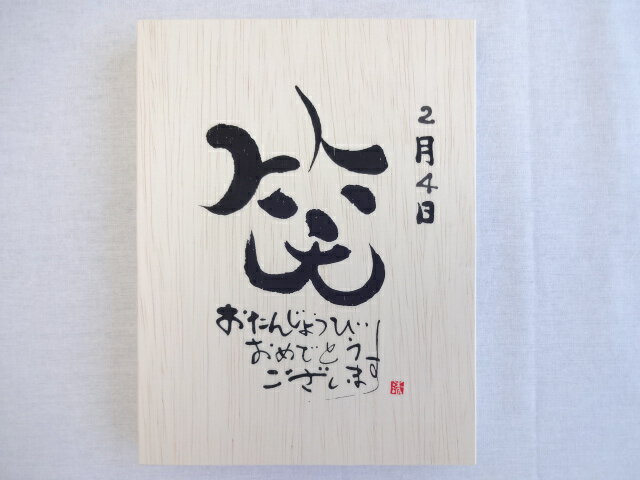 2月4日
笑
おたんじょうび
おめでとう
ございます